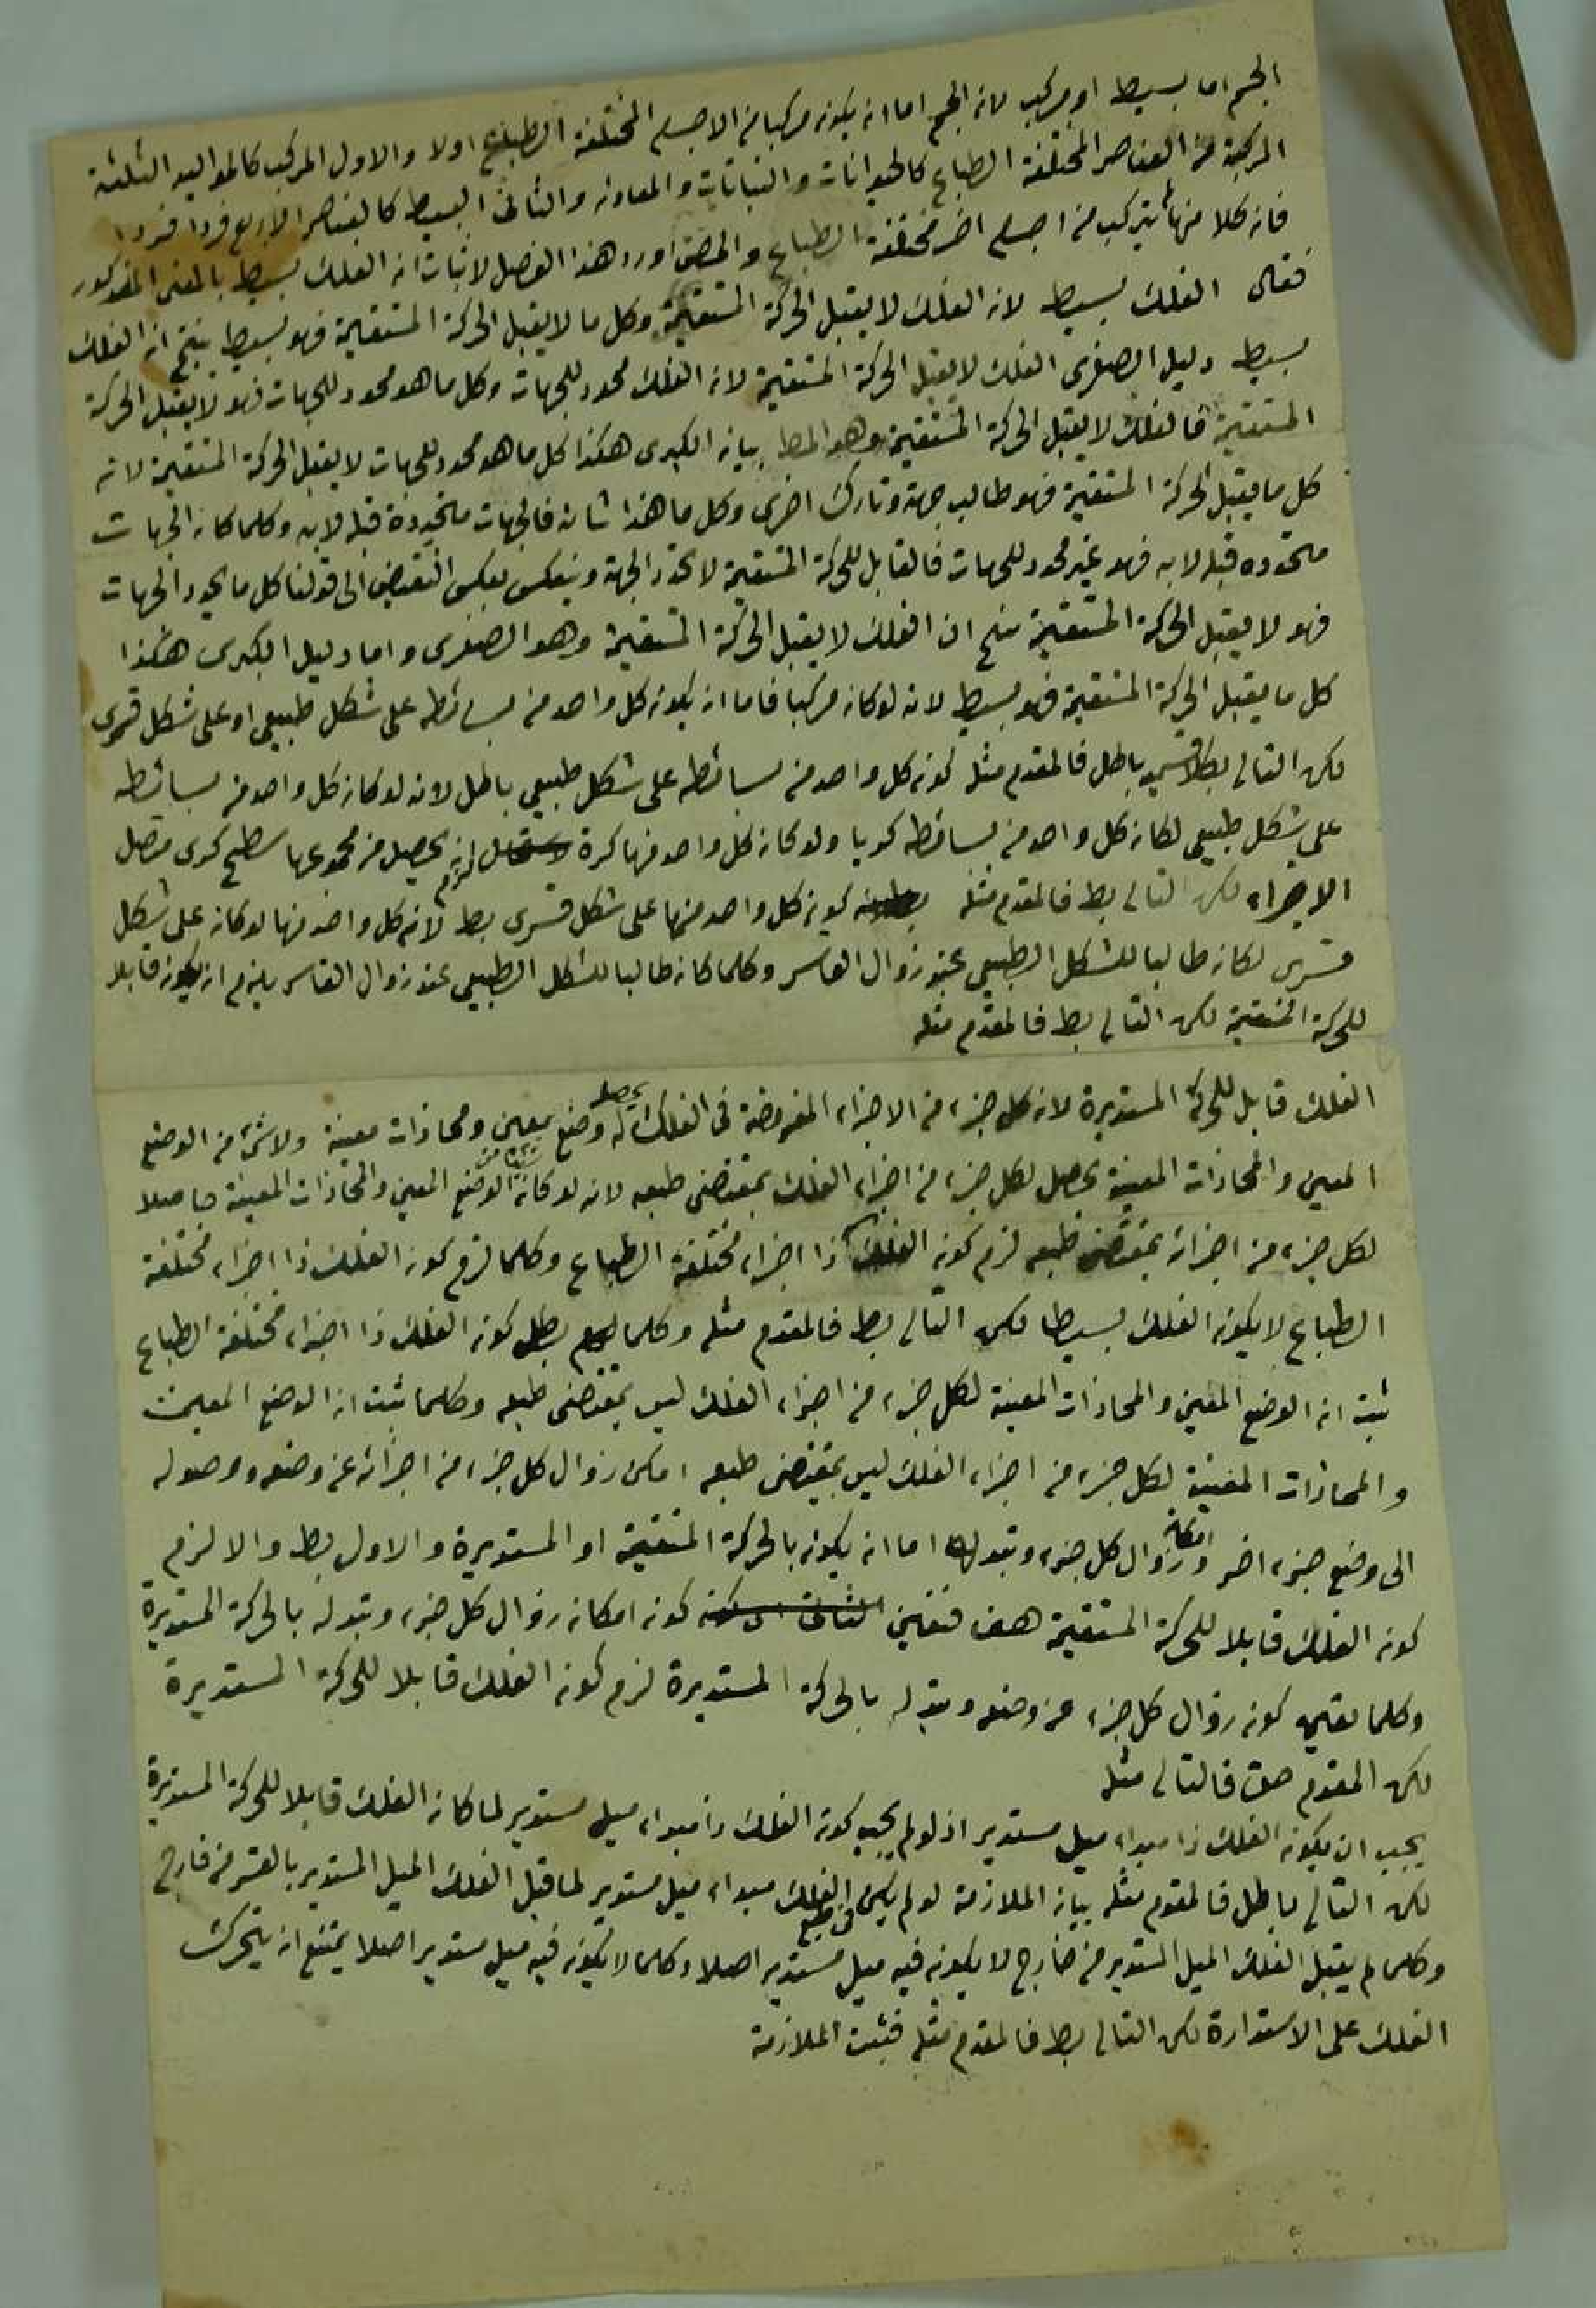 الجسم اما بسيط او مركب لانه الجسم اما ان يكون مركبا من الاجسام المختلفة الطبايع اولا والاول المركب كالمواليد الثلثة
المركبة من العناصر المختلفة الطباع كالحيوانات والنباتات والمعادن والثانى البسيط كالعناصر الاربع فردا فردا
فان كلا منها يتركب من اجسام اخر مختلفة الطباع والمص اورد هذا الفصل لاثبات ان الفلك بسيط بالمعنى المذكور
فقال الفلك بسيط لان الفلك لا يقبل الحركة المستقيمة وكل ما لا يقبل الحركة المستقيمة فهو بسيط ينتج ان الفلك
بسيط دليل الصغرى الفلك لا يقبل الحركة المستقيمة لان الفلك محدد للجهات وكل ما هو محدد للجهات فهو لا يقبل الحركة
المستقيمة فالفلك لا يقبل الحركة المستقيمة وهو المط بيان الكبرى هكذا كل ما هو محدد للجهات لا يقبل الحركة المستقيمة لانه
كل ما يقبل الحركة المستقيمة فهو طالب جهة وتارك اخرى وكل ما هذا شانه فالجهات متحددة قبله لا به وكلما كان الجهات
متحدده قبله لا به فهو غير محدد للجهات فالقابل للحركة المستقيمة لا يحدد الجهة وينعكس بعكس النقيض الى قولنا كل ما يحدد الجهات
فهو لا يقبل الحركة المستقيمة ينتج ان الفلك لا يقبل الحركة المستقيمة وهو الصغرى واما دليل الكبرى هكذا
كل ما يقبل الحركة المستقيمة فهو بسيط لانه لو كان مركبا فاما ان يكون كل واحد من بسائطه على شكل طبيعى او على شكل قسرى
لكن التالى بقسميه باطل فالمقدم مثله كون كل واحد من بسائطه على شكل طبيعى باطل لانه لو كان كل واحد من بسائطه
على شكل طبيعى لكان كل واحد من بسائطه كريا ولو كان كل واحد منها كرة لزم ان يحصل من مجموعها سطح كرى متصل
الاجزاء لكن التالى بط فالمقدم مثله كون كل واحد منها على شكل قسرى بط لانه كل واحد منها لو كان على شكل
قسرى لكان طالبا للشكل الطبيعى عند زوال القاسر وكلما كان طالبا للشكل الطبيعى عند زوال القاسر يلزم ان يكون قابلا
للحركة المستقيمة لكن التالى بط فالمقدم مثله
الفلك قابل للحركة المستديرة لان كل جزء من الاجزاء المفروضة فى الفلك يحصل له وضع معين ومحاذات معينة ولا شئ من الوضع
المعين والمحاذات المعينة يحصل لكل جزء من اجزاء الفلك بمقتضى طبعه لانه لو كان الوضع المعين والمحاذات المعينة حاصلا
لكل جزء من اجزائه بمقتضى طبعه لزم كون الفلك ذا اجزاء مختلفة الطباع وكلما لزم كون الفلك ذا اجزاء مختلفة
الطباع لا يكون الفلك بسيطا لكن التالى بط فالمقدم مثله وكلما بطل كون الفلك ذا اجزاء مختلفة الطباع
ثبت ان الوضع المعين والمحاذات المعينة لكل جزء من اجزاء الفلك ليس بمقتضى طبعه وكلما ثبت ان الوضع المعين
والمحاذات المعينة لكل جزء من اجزاء الفلك ليس بمقتضى طبعه امكن زوال كل جزء من اجزائه عن وضعه ووصوله
الى وضع جزء اخر وامكان زوال كل جزء وتبدله اما ان يكون بالحركة المستقيمة او المستديرة والاول بط والا لزم
كون الفلك قابلا للحركة المستقيمة هف فتعين كون امكان زوال كل جزء وتبدله بالحركة المستديرة
وكلما تعين كون زوال كل جزء عن وضعه وتبدله بالحركة المستديرة لزم كون الفلك قابلا للحركة المستديرة
لكن المقدم حق فالتالى مثله
يجب ان يكون الفلك ذا مبداء ميل مستدير اذ لو لم يجب كون الفلك ذا مبداء ميل مستدير لما كان الفلك قابلا للحركة المستديرة
لكن التالى باطل فالمقدم مثله بيان الملازمة لو لم يكن فى طبع الفلك مبداء ميل مستدير لما قبل الفلك الميل المستدير بالقسر من خارج
وكلما لم يقبل الفلك الميل المستدير من خارج لا يكون فيه ميل مستدير اصلا وكلما لا يكون فيه ميل مستدير اصلا يمتنع ان يتحرك
الفلك على الاستدارة لكن التالى بط فالمقدم مثله فثبت الملازمة